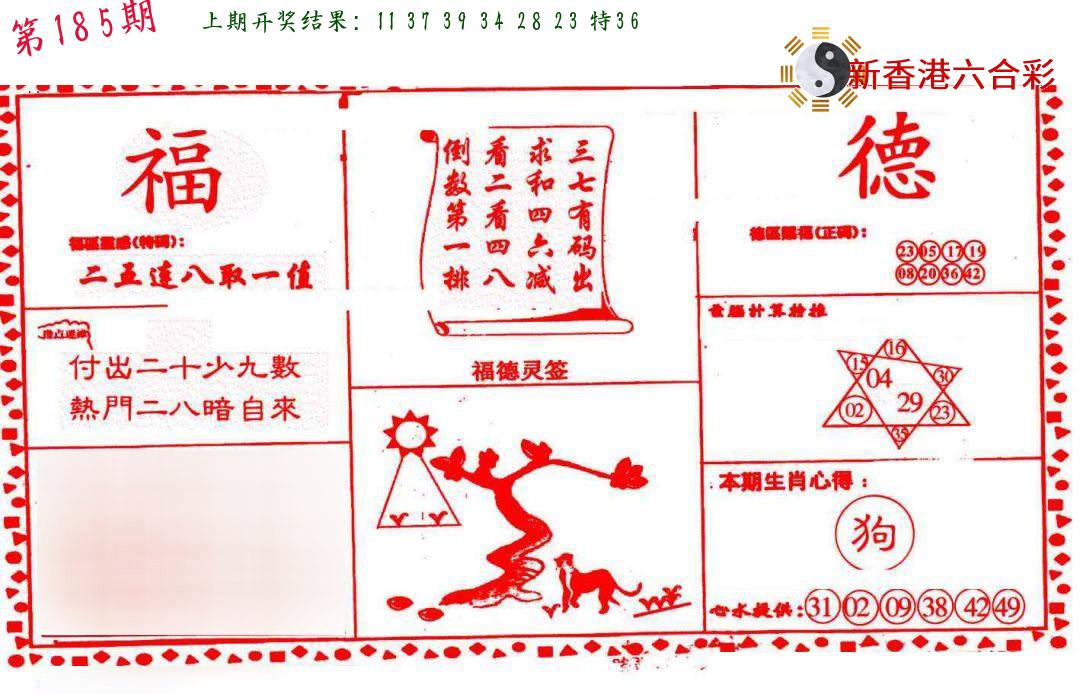 第185期
上期开奖结果：11 37 39 34 28 23 特36
新香港六合彩
福
福區靈感(特碼)：
二五连八取一值
付出二十少九數
熱門二八暗自來
三七有码出
求和四六减
看二看四八
倒数第一排
福德灵签
德
德區賜福(正碼)：
23 05 17 19
08 20 36 42
電腦計算推
16
15 04 30
02 29 23
35
本期生肖心得：
狗
心水提供：31 02 09 38 42 49